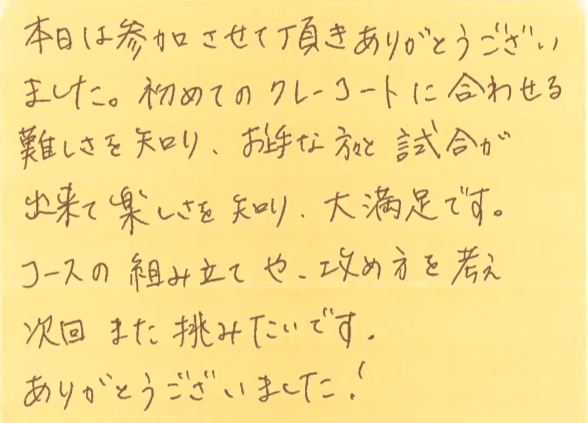 本日は参加させて頂きありがとうござい
ました。初めてのクレーコートに合わせる
難しさを知り、お上手な方々と試合が
出来て楽しさを知り、大満足です。
コースの組み立てや、攻め方を考え
次回また挑みたいです。
ありがとうございました!